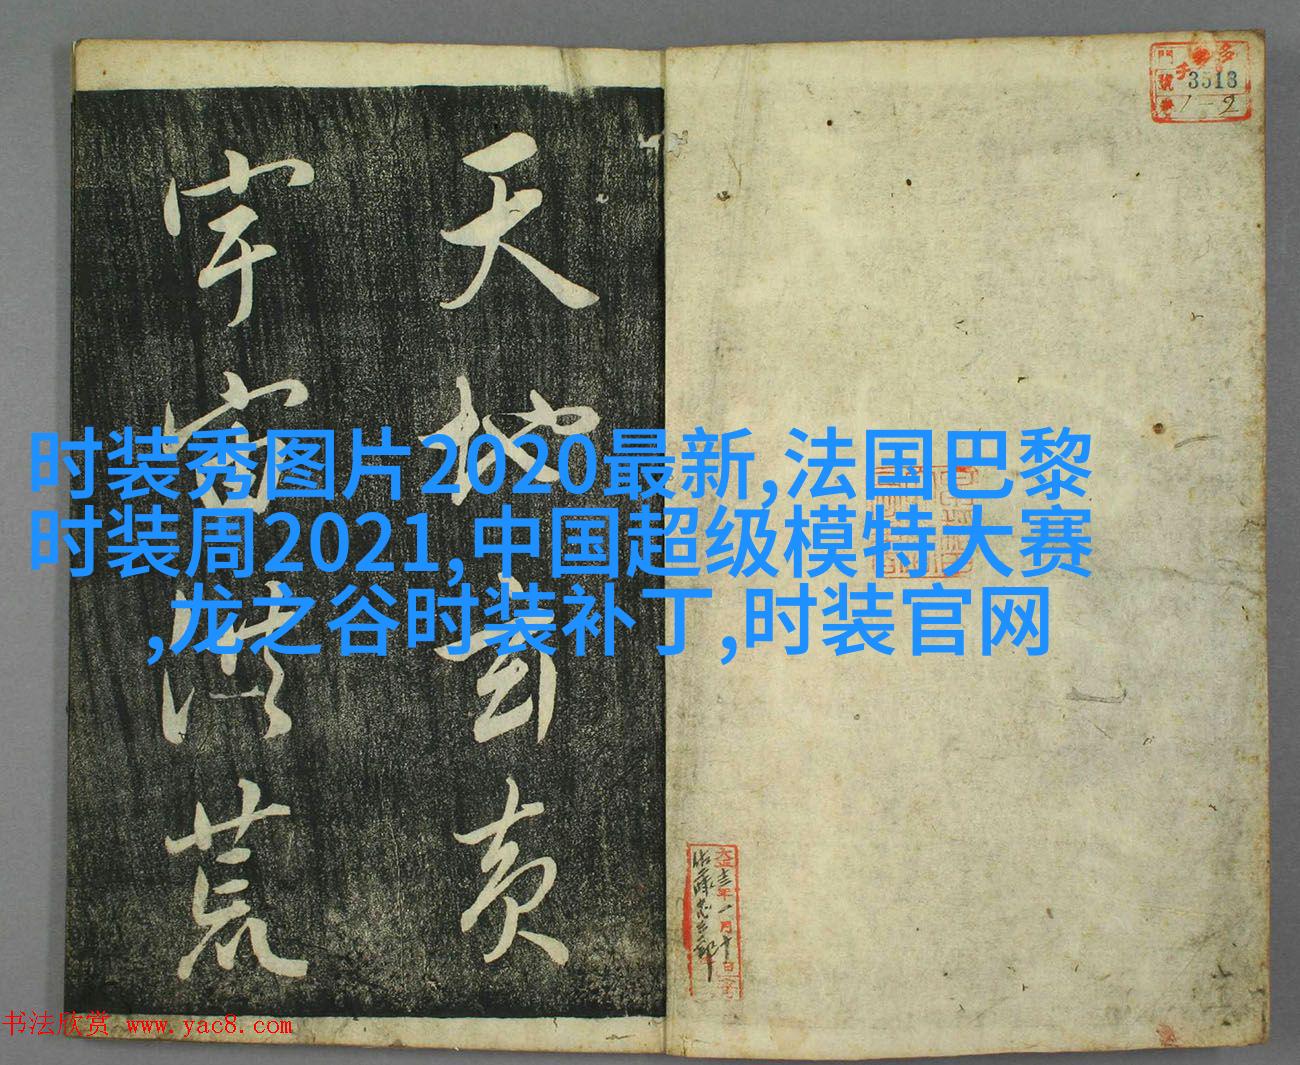 天地玄黄
宇宙洪荒
時装秀图片2020最新,法国巴黎
时装周2021,中国超级模特大赛
,龙之谷时装补丁,时装官网
3513
1-2
大正十三年一月十日
书法欣赏 www.yac8.com